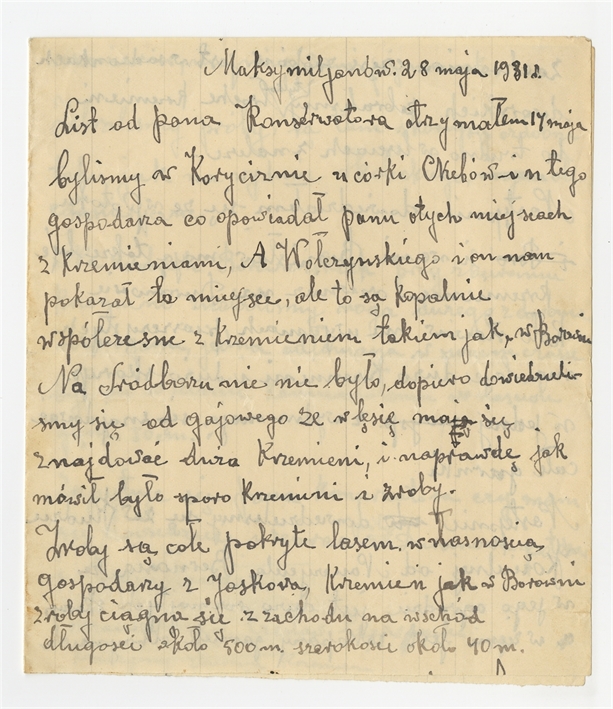 Maksymiljanów. 28 maja 1931 r.
List od pana Konserwatora otrzymałem 17 maja
bylismy w Koryciznie u córki Chebów i u tego
gospodarza co opowiadał panu otych miejscach
z krzemieniami, A Wołczynskiego i on nam
pokazał to miejsce, ale to są kopalnie
współczesne z krzemieniem takiem jak w Borowni
Na Śródborzu nic nie było, dopiero dowiedzieli-
smy się od gajowego że w lęsię mają się
znajdować duża Krzemieni, i naprawdę jak
mówił było sporo krzemieni i zroby.
Zroby są całe pokryte lasem własnoscią
gospodarzy z Jaskova, Krzemien jak w Borowni
zroby ciągną się z zachodu na wschód
długości około 500 m. szerokosci około 40 m.